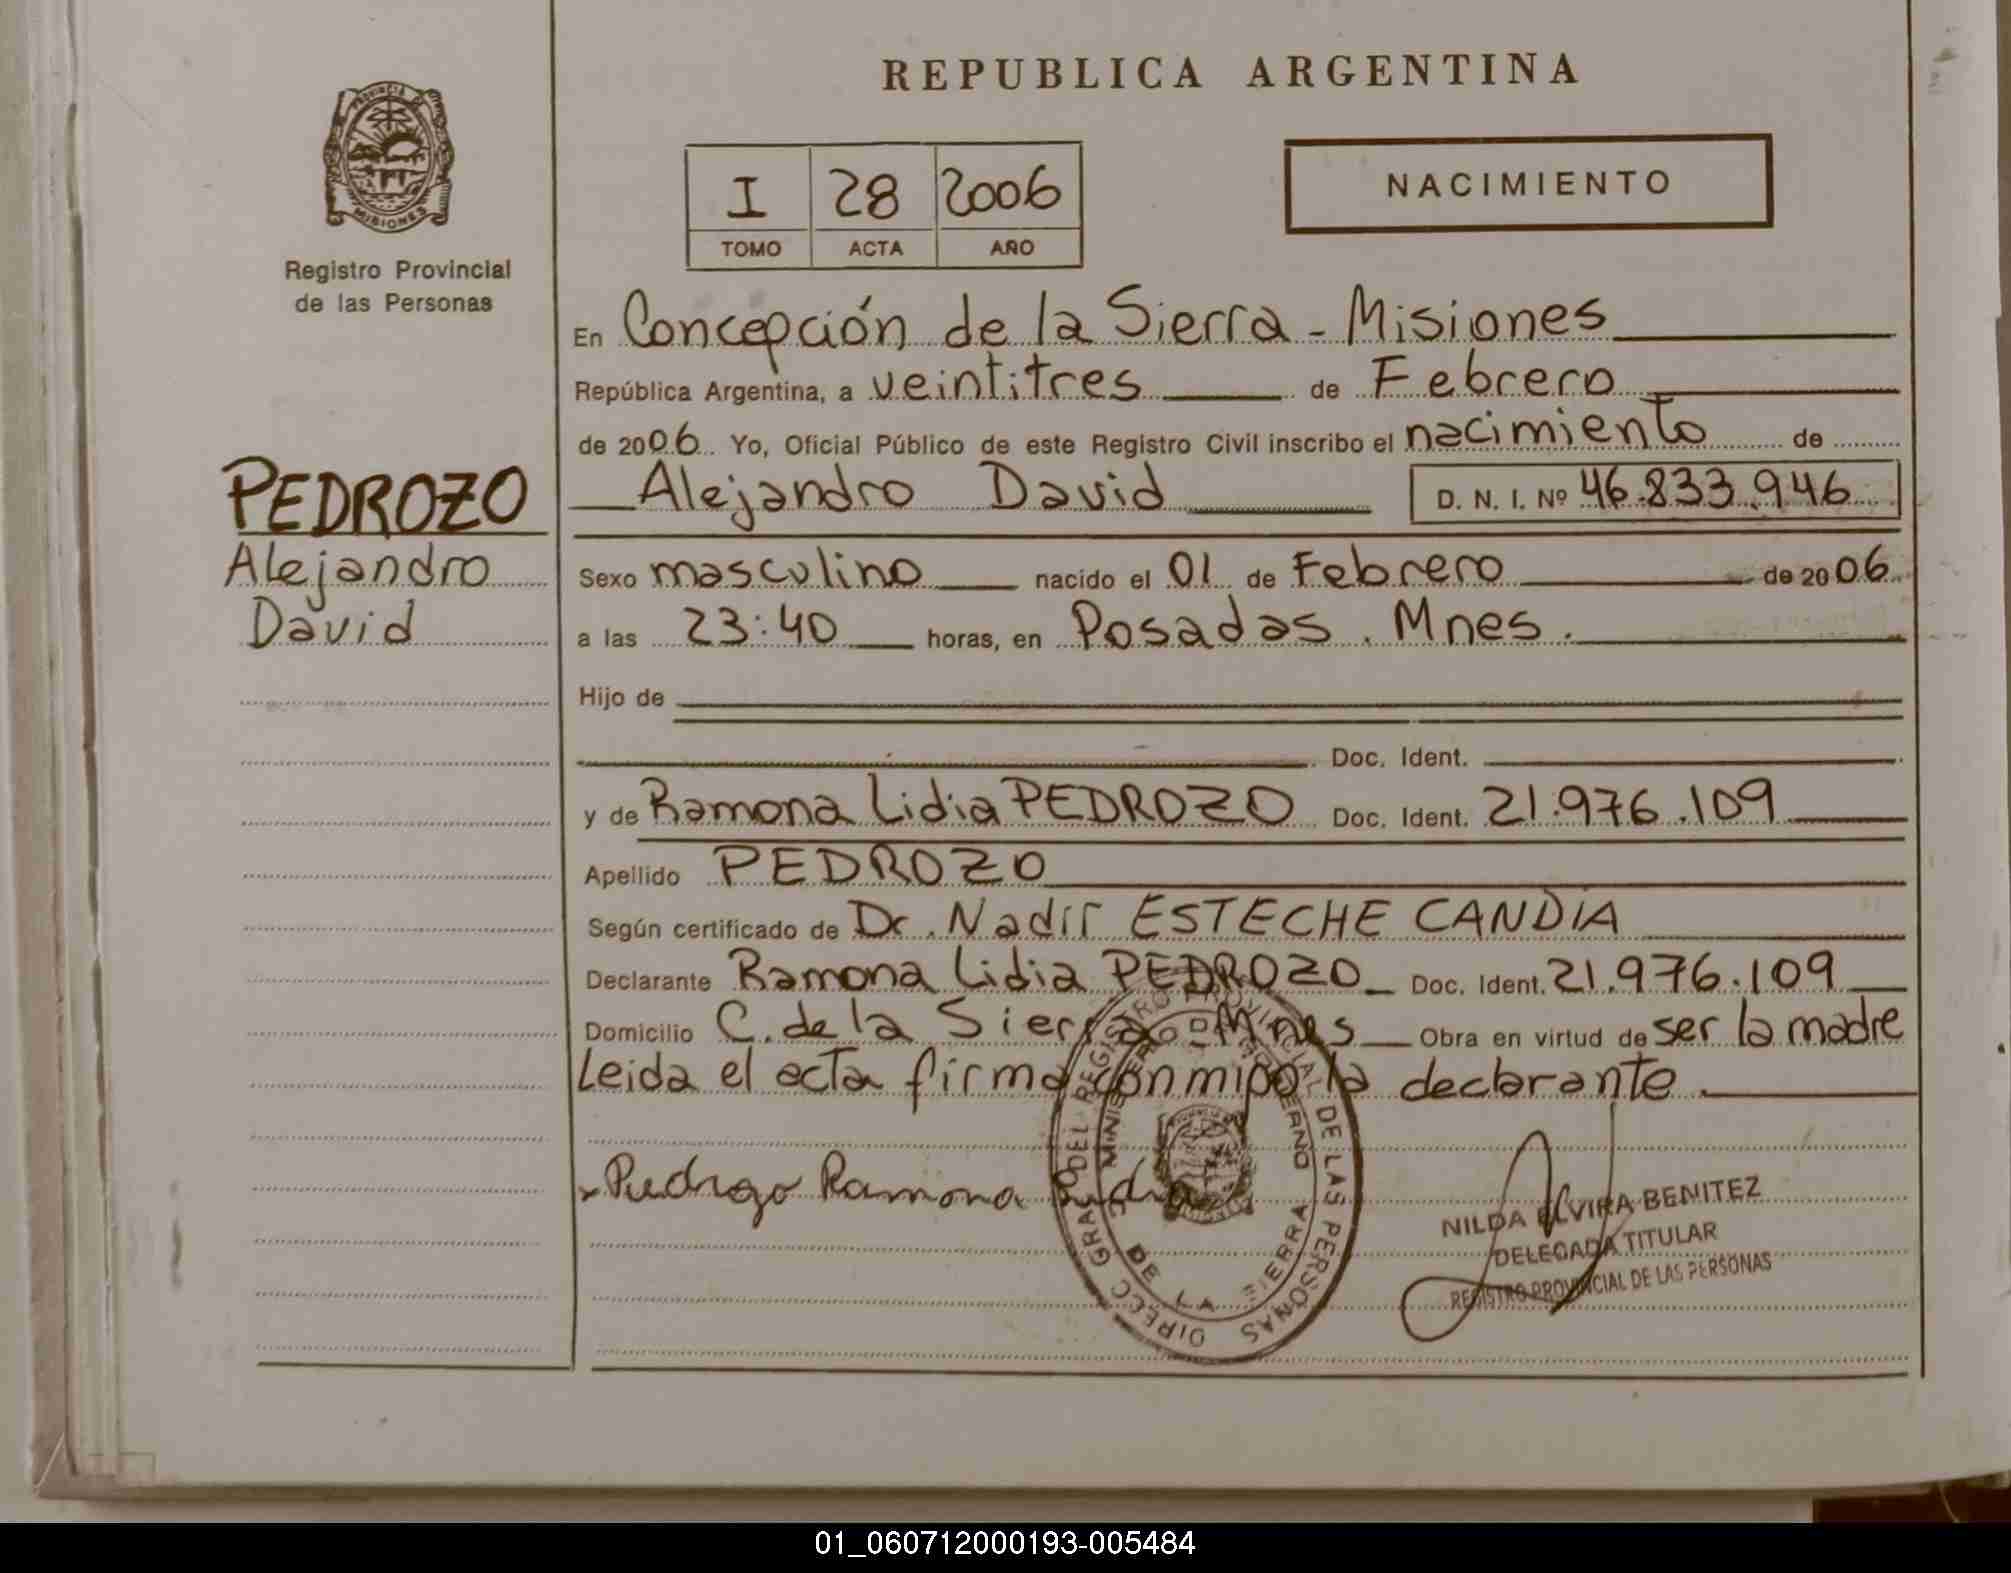 REPUBLICA ARGENTINA
PROVINCIA DE MISIONES
Registro Provincial
de las Personas
I 28 2006
TOMO ACTA AÑO
NACIMIENTO
En Concepción de la Sierra - Misiones
República Argentina, a veintitres de Febrero
de 2006. Yo, Oficial Público de este Registro Civil inscribo el nacimiento de
PEDROZO
Alejandro
David
Alejandro David D. N. I. Nº 46.833.946
Sexo masculino nacido el 01 de Febrero de 2006
a las 23:40 horas, en Posadas. Mnes.
Hijo de
Doc. Ident.
y de Ramona Lidia PEDROZO Doc. Ident. 21.976.109
Apellido PEDROZO
Según certificado de Dr. Nadir ESTECHE CANDIA
Declarante Ramona Lidia PEDROZO Doc. Ident. 21.976.109
Domicilio C. de la Sierra - Mnes Obra en virtud de ser la madre
Leida el acta firma conmigo la declarante.
Pedrozo Ramona Lidia
DIREC GRAL DEL REGISTRO PROVINCIAL DE LAS PERSONAS
MINISTERIO DE GOBIERNO
DE LA SIERRA
NILDA ELVIRA BENITEZ
DELEGADA TITULAR
REGISTRO PROVINCIAL DE LAS PERSONAS
01_060712000193-005484